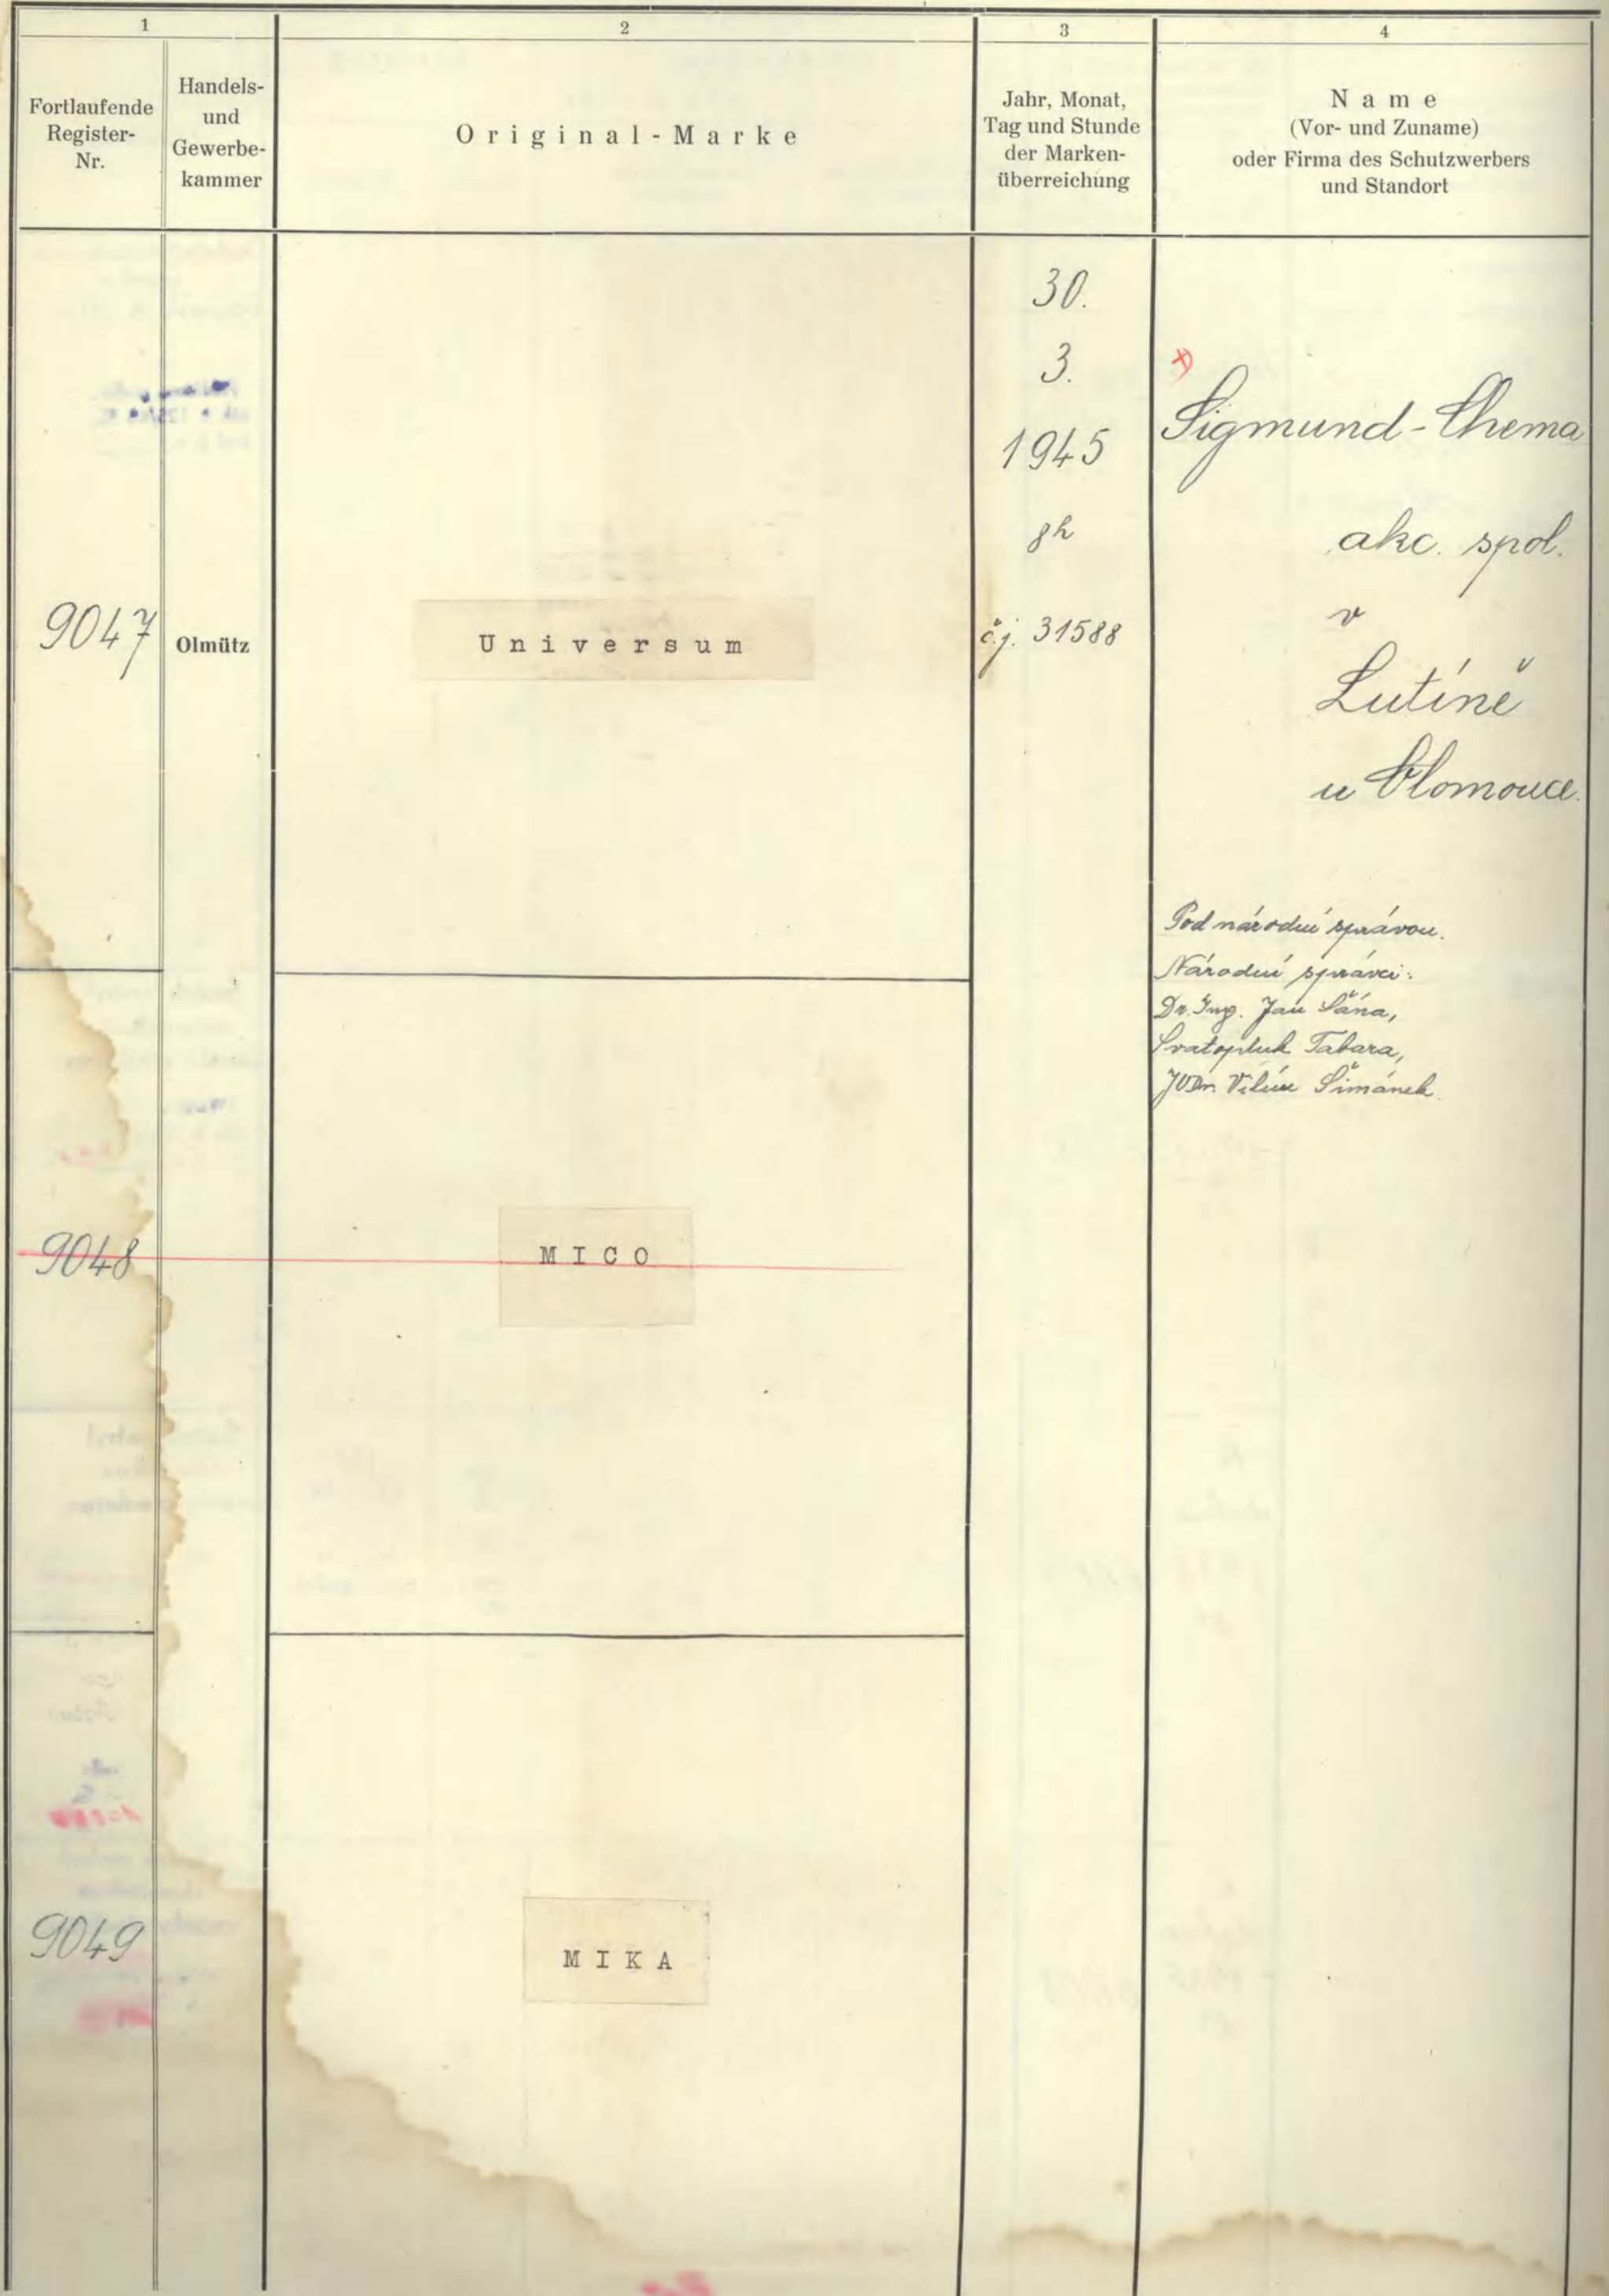 1
2
3
4
Fortlaufende
Register-
Nr.
Handels-
und
Gewerbe-
kammer
Original-Marke
Jahr, Monat,
Tag und Stunde
der Marken-
überreichung
Name
(Vor- und Zuname)
oder Firma des Schutzwerbers
und Standort
9047
Olmütz
Universum
30.
3.
1945
8h
č.j. 31588
Sigmund-Chema
akc. spol.
v
Lutíně
u Olomouce.
Pod národní správou.
Národní správci:
Dr. Ing. Jan Šána,
Svatopluk Tabara,
JUDr. Vilém Šimánek.
9048
MICO
9049
MIKA